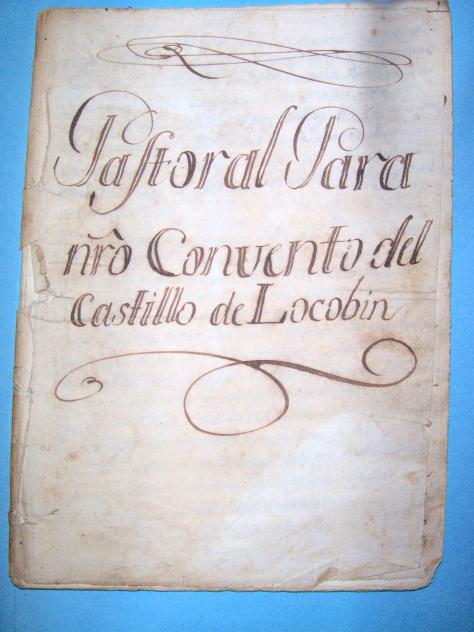 Paſtoral Para
nr̃o Convento del
Castilllo de Locobin